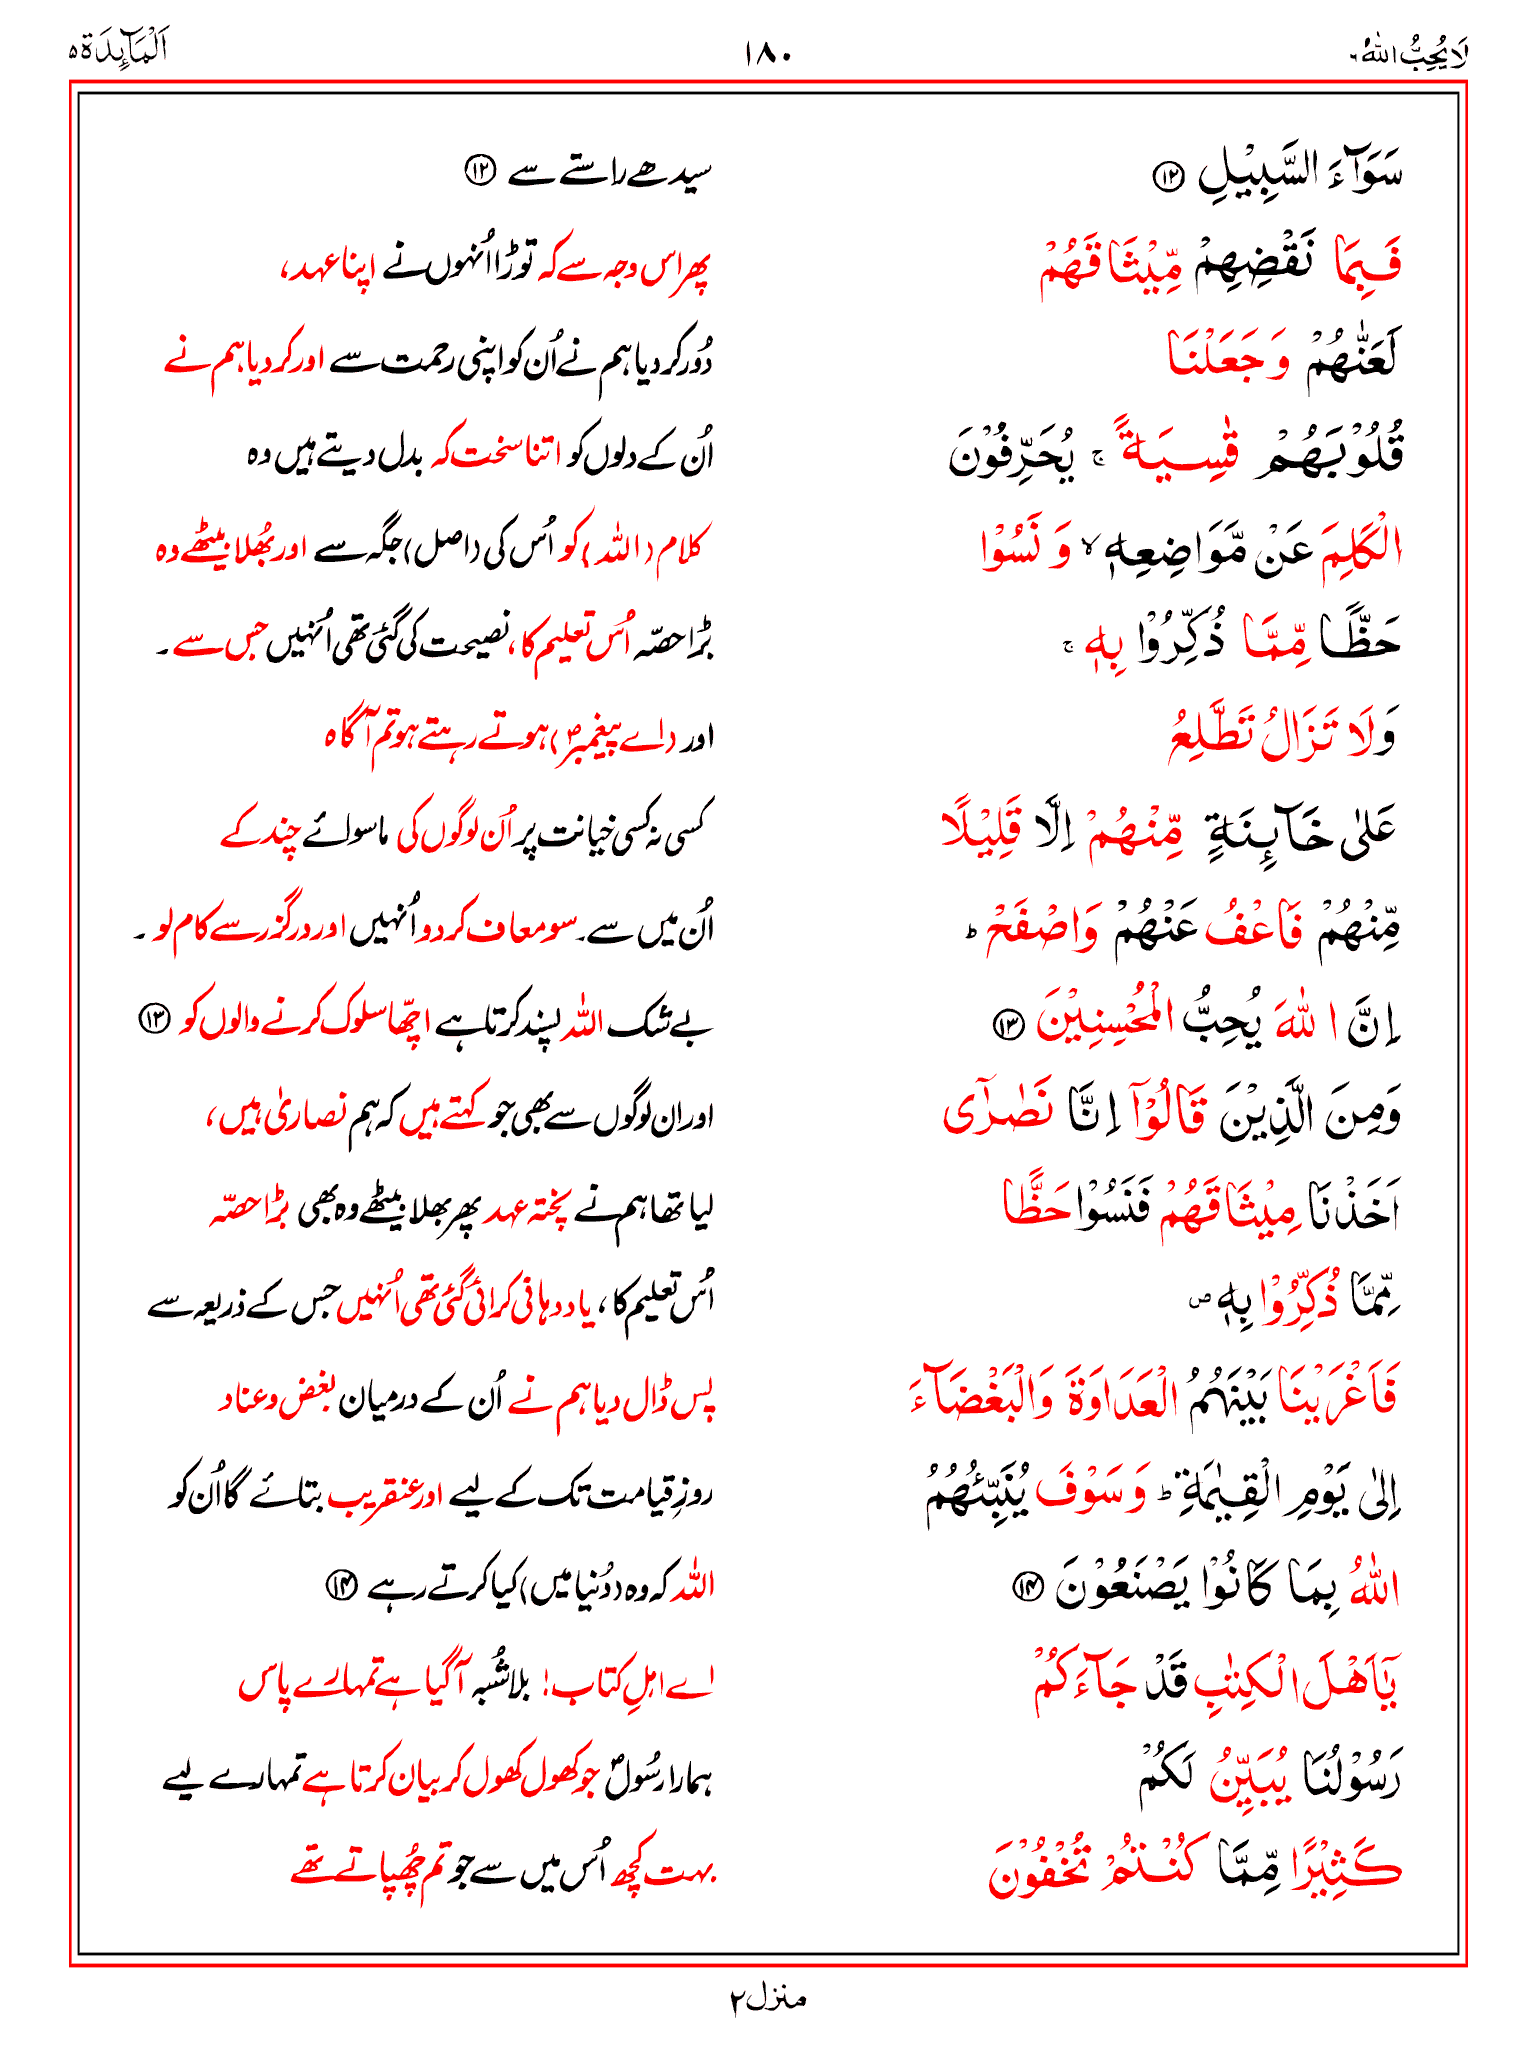 لَا يُحِبُّ اللّٰهُ ۶ ۱۸۰ اَلْمَآئِدَة ۵
سَوَآءَ السَّبِيْلِ ⑫ سیدھے راستے سے ⑫
فَبِمَا نَقْضِهِمْ مِّيْثَاقَهُمْ پھر اس وجہ سے کہ توڑا اُنہوں نے اپنا عہد،
لَعَنّٰهُمْ وَجَعَلْنَا دُور کر دیا ہم نے اُن کو اپنی رحمت سے اور کر دیا ہم نے
قُلُوْبَهُمْ قٰسِيَةً ۚ يُحَرِّفُوْنَ اُن کے دلوں کو اتنا سخت کہ بدل دیتے ہیں وہ
الْكَلِمَ عَنْ مَّوَاضِعِهٖ ۙ وَ نَسُوْا کلام (اللہ) کو اُس کی (اصل) جگہ سے اور بُھلا بیٹھے وہ
حَظًّا مِّمَّا ذُكِّرُوْا بِهٖ ۚ بڑا حصّہ اُس تعلیم کا، نصیحت کی گئی تھی اُنہیں جس سے ۔
وَلَا تَزَالُ تَطَّلِعُ اور (اے پیغمبرؐ) ہوتے رہتے ہو تم آگاہ
عَلٰى خَآئِنَةٍ مِّنْهُمْ اِلَّا قَلِيْلًا کسی نہ کسی خیانت پر اُن لوگوں کی ماسوائے چند کے
مِّنْهُمْ فَاعْفُ عَنْهُمْ وَاصْفَحْ ؕ اُن میں سے۔ سو معاف کر دو اُنہیں اور درگزر سے کام لو ۔
اِنَّ اللّٰهَ يُحِبُّ الْمُحْسِنِيْنَ ⑬ بے شک اللہ پسند کرتا ہے اچھّا سلوک کرنے والوں کو ⑬
وَمِنَ الَّذِيْنَ قَالُوْٓا اِنَّا نَصٰرٰٓى اور ان لوگوں سے بھی جو کہتے ہیں کہ ہم نصاریٰ ہیں،
اَخَذْنَا مِيْثَاقَهُمْ فَنَسُوْا حَظًّا لیا تھا ہم نے پختہ عہد پھر بھلا بیٹھے وہ بھی بڑا حصّہ
مِّمَّا ذُكِّرُوْا بِهٖ ۪ اُس تعلیم کا، یاد دہانی کرائی گئی تھی اُنہیں جس کے ذریعہ سے
فَاَغْرَيْنَا بَيْنَهُمُ الْعَدَاوَةَ وَالْبَغْضَآءَ پس ڈال دیا ہم نے اُن کے درمیان بغض و عناد
اِلٰى يَوْمِ الْقِيٰمَةِ ؕ وَسَوْفَ يُنَبِّئُهُمُ روزِ قیامت تک کے لیے اور عنقریب بتائے گا اُن کو
اللّٰهُ بِمَا كَانُوْا يَصْنَعُوْنَ ⑭ اللہ کہ وہ (دُنیا میں) کیا کرتے رہے ⑭
يٰٓاَهْلَ الْكِتٰبِ قَدْ جَآءَكُمْ اے اہلِ کتاب! بلاشُبہ آ گیا ہے تمہارے پاس
رَسُوْلُنَا يُبَيِّنُ لَكُمْ ہمارا رسُولؐ جو کھول کھول کر بیان کرتا ہے تمہارے لیے
كَثِيْرًا مِّمَّا كُنْتُمْ تُخْفُوْنَ بہت کچھ اُس میں سے جو تم چُھپاتے تھے
منزل ۲